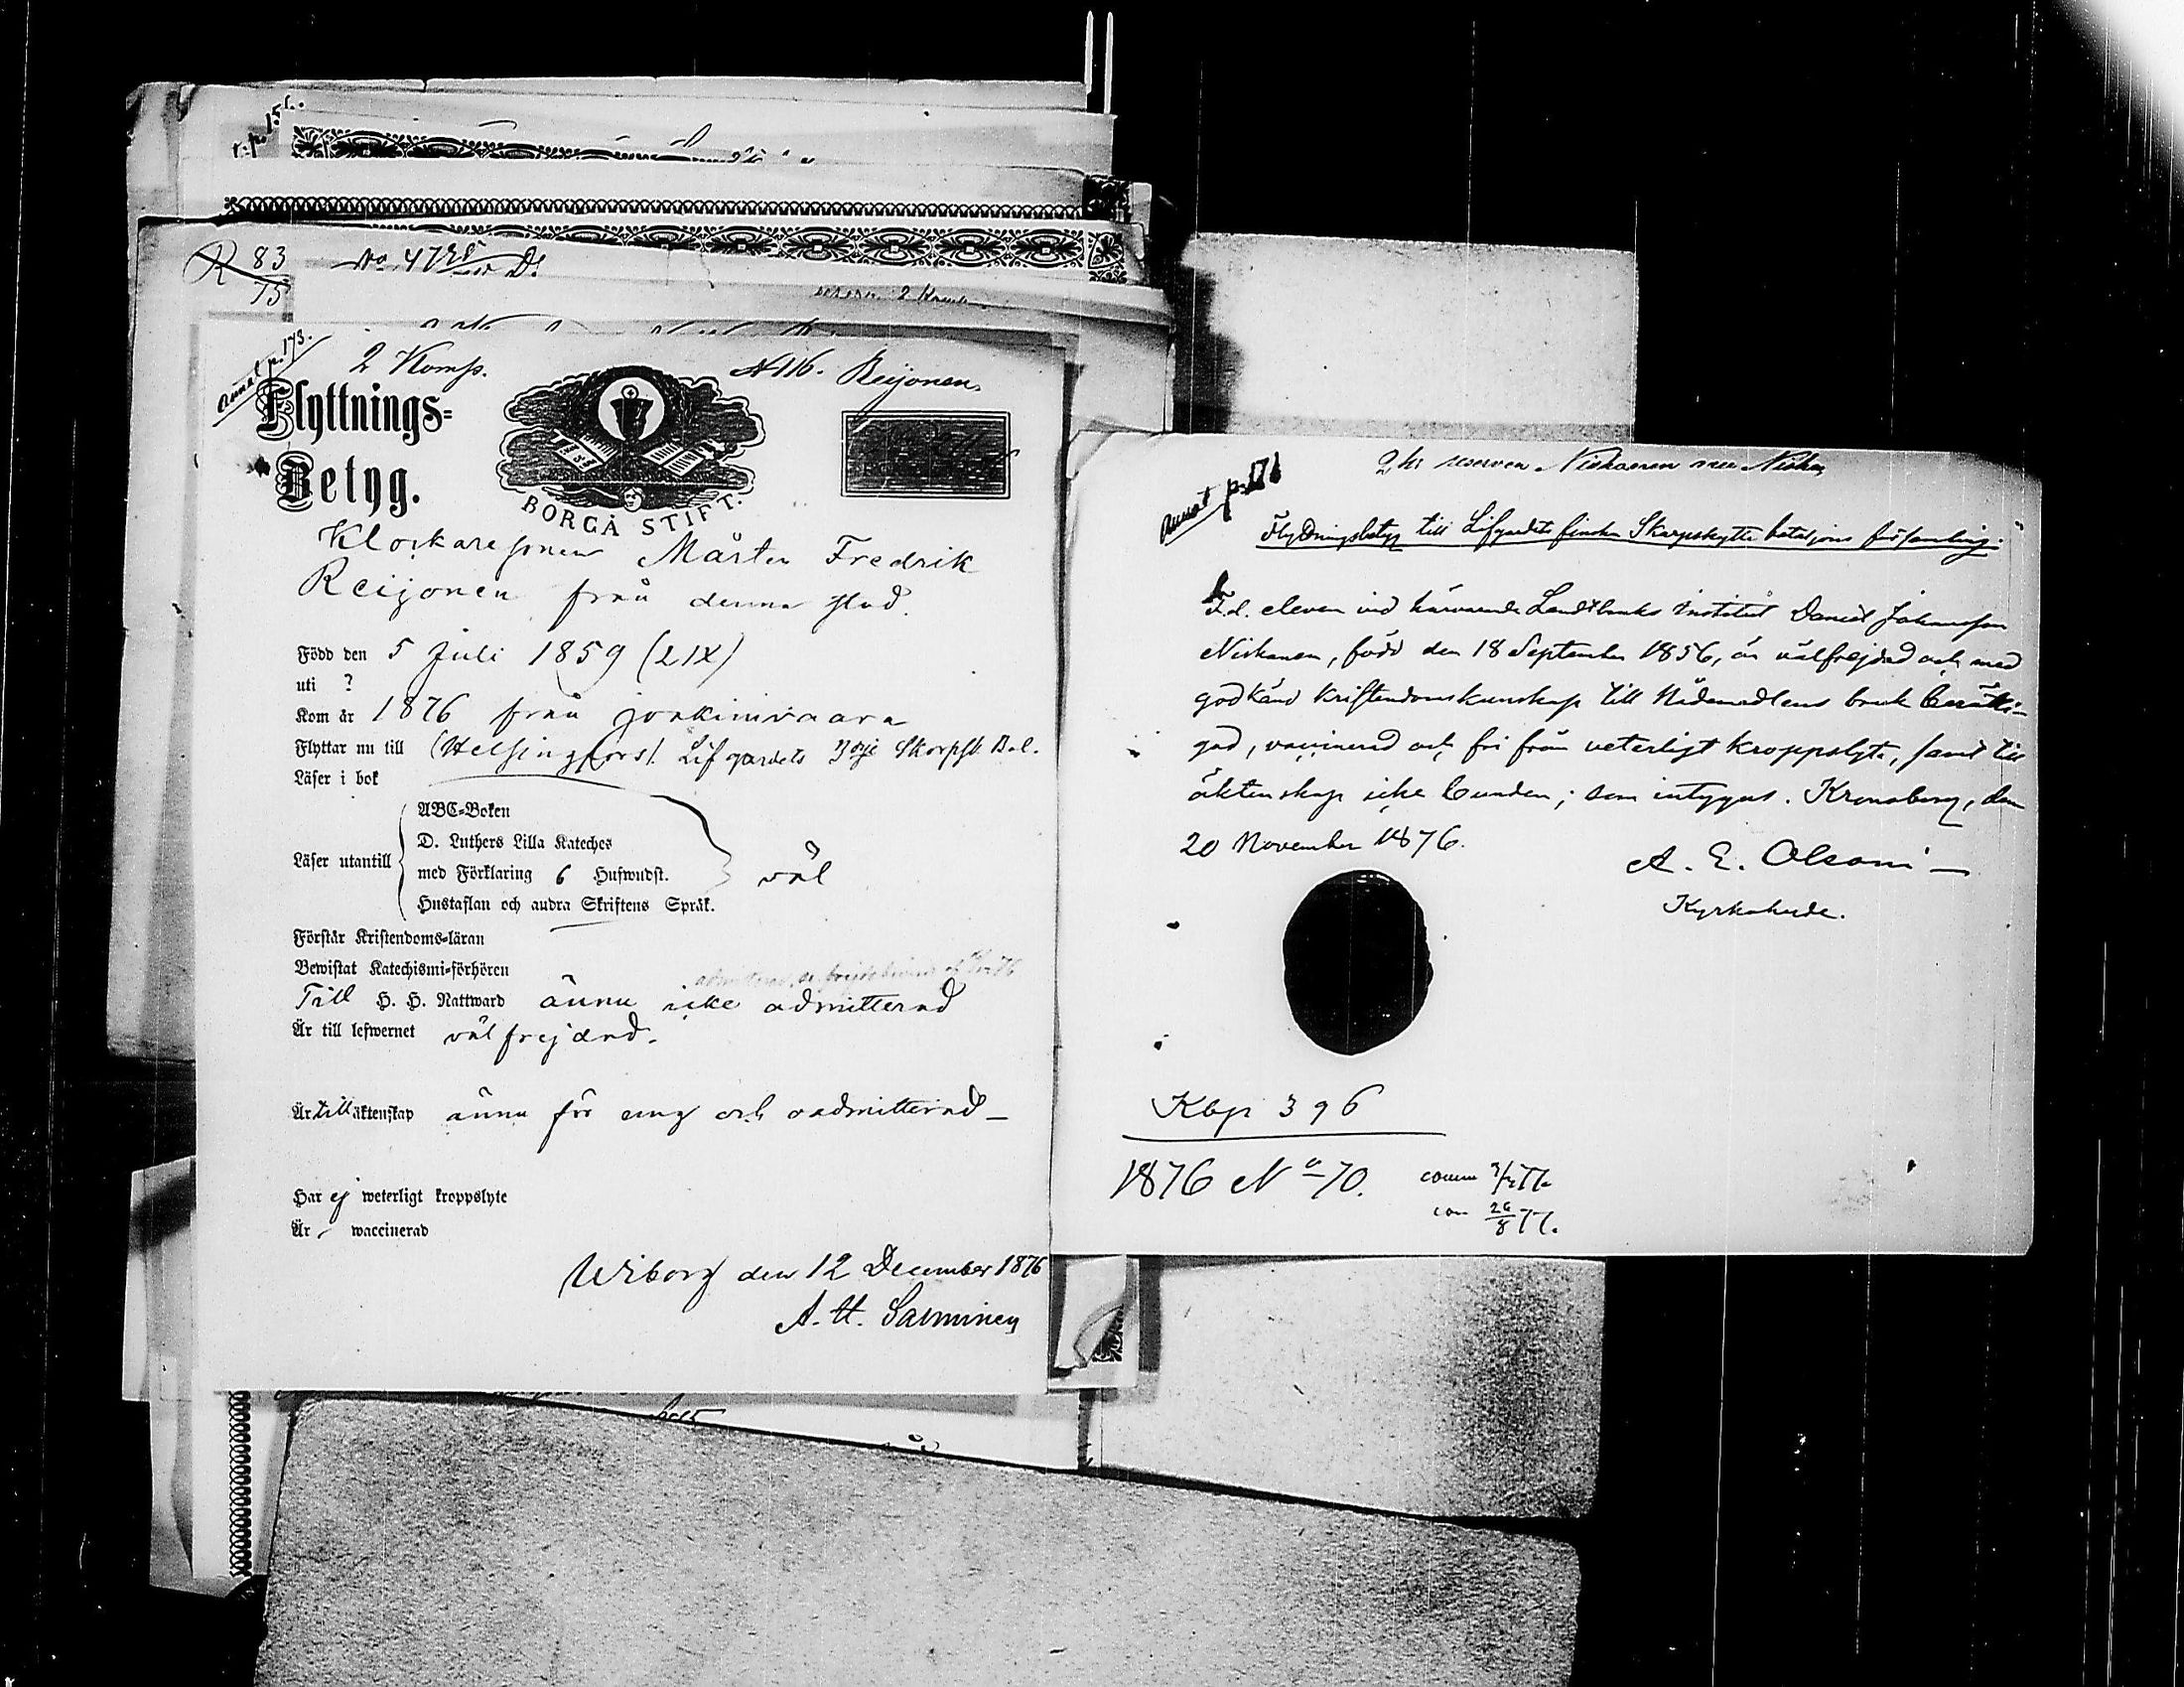 R 83
75
No 47
2 Komp.
N 116. Reijonen
annot p. 173.
Flyttnings-
Betyg.
BORGÅ STIFT.
Klockaresonen Mårten Fredrik
Reijonen från denna stad.
Född den 5 Juli 1859 (LIX)
uti ?
Kom år 1876 från Joukinvaara
Flyttar nu till (Helsingfors). Lifgardets 3dje Skarpsk. Bat.
Läser i bok
Läser utantill
ABC-Boken
D. Luthers Lilla Kateches
med Förklaring 6 Hufwudst.
Hustaflan och andra Skriftens Språk.
väl
Förstår Kristendoms-läran
Bewistat Katechismi-förhören
Till H. H. Nattward ännu icke admitterad
Är till lefwernet välfrejdad.
Är till äktenskap ännu för ung och oadmitterad
Har ej weterligt kroppslyte
Är waccinerad
Wiborg den 12 December 1876
A. H. Salminen
annot p. 176
2 K reserven Niskanen
Flyttningsbetyg till Lifgardets finska Skarpskytte bataljons församling.
F.d. eleven vid härvarande Landtbruks institut Daniel Johansson
Niskanen, född den 18 September 1856, är välfrejdad och med
godkänd kristendomskunskap till Nådemedlens bruk berätti-
gad, vaccinerad och fri från veterligt kroppslyte, samt till
äktenskap icke bunden; som intygas. Kronoborg, den
20 November 1876.
A. E. Olsoni
Kyrkoherde.
Kbp 396
1876 No 70.
comm 3/2 77.
com 26/8 77.